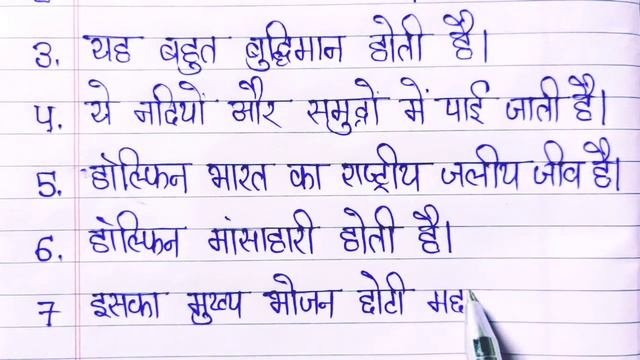 3. यह बहुत बुद्धिमान होती है।
4. ये नदियों और समुद्रों में पाई जाती है।
5. डॉल्फिन भारत का राष्ट्रीय जलीय जीव है।
6. डॉल्फिन मांसाहारी होती है।
7 इसका मुख्य भोजन छोटी मछ